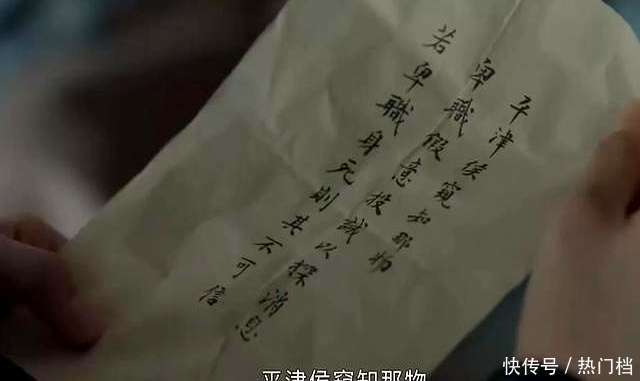 平津侯窺知那物
卑職假意投誠以探消息
若卑職身死則其不可信
平津侯窥知那物
快传号 / 热门档